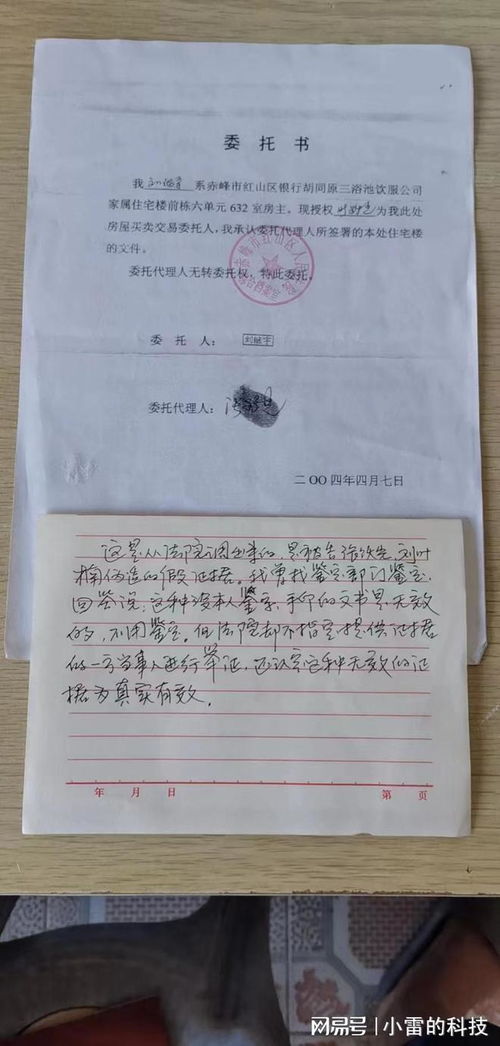 委托书
我 系赤峰市红山区银行胡同原三浴池饮服公司
家属住宅楼前栋六单元632室房主。现授权 为我此处
房屋买卖交易委托人，我承认委托代理人所签署的本处住宅楼
的文件。
委托代理人无转委托权，特此委托。
委 托 人：
委托代理人：
二〇〇四年四月七日
这是从法院调出来的，是被告张 先，刘叶
楠伪造的假证据。我曾找鉴定部门鉴定，
回答说，这种没本人鉴定、手印的文书是无效
的，不用鉴定。但法院却不指定提供证据
的一方当事人进行举证，还认定这种无效的证
据为真实有效。
年 月 日 第 页
网易号 | 小雷的科技